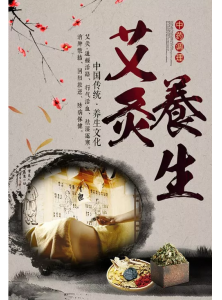 中药调理
艾灸
養生
中国传统，养生文化
艾灸，温经活络，行气活血，祛湿逐寒，
消肿散结，回阳救逆，防病保健。